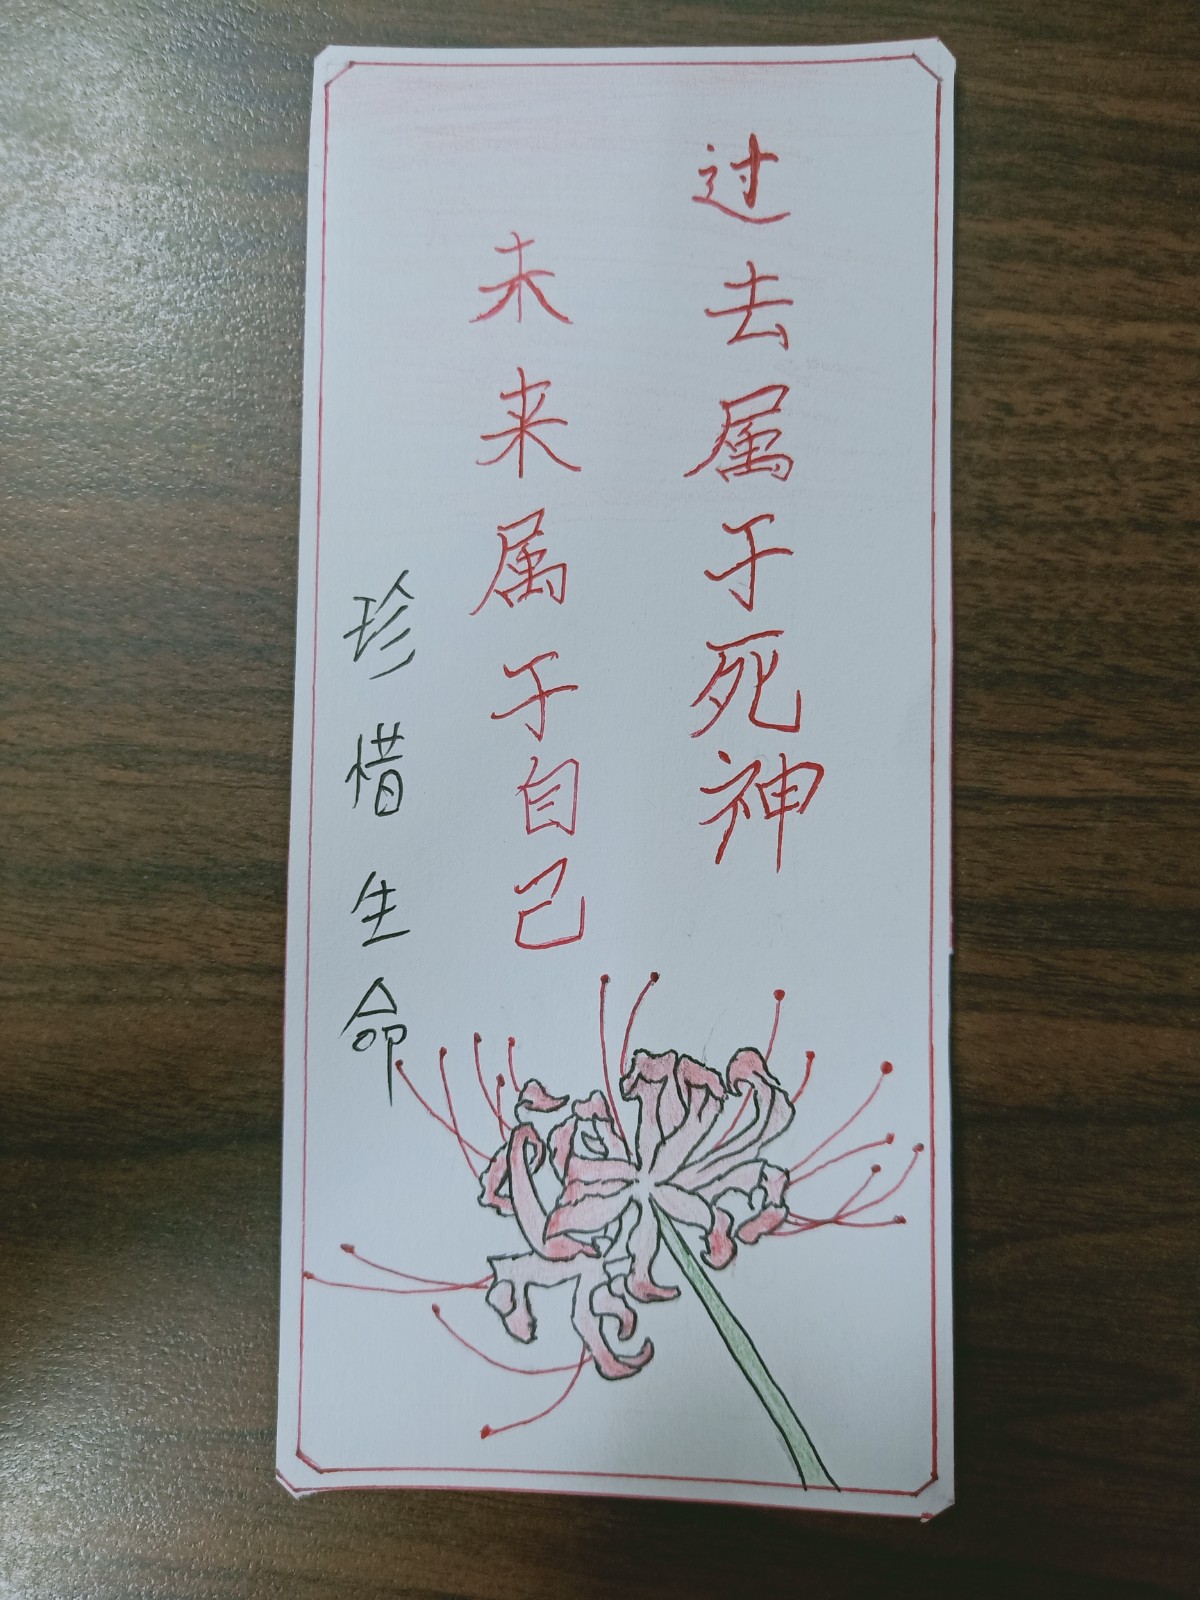 过去属于死神
未来属于自己
珍惜生命